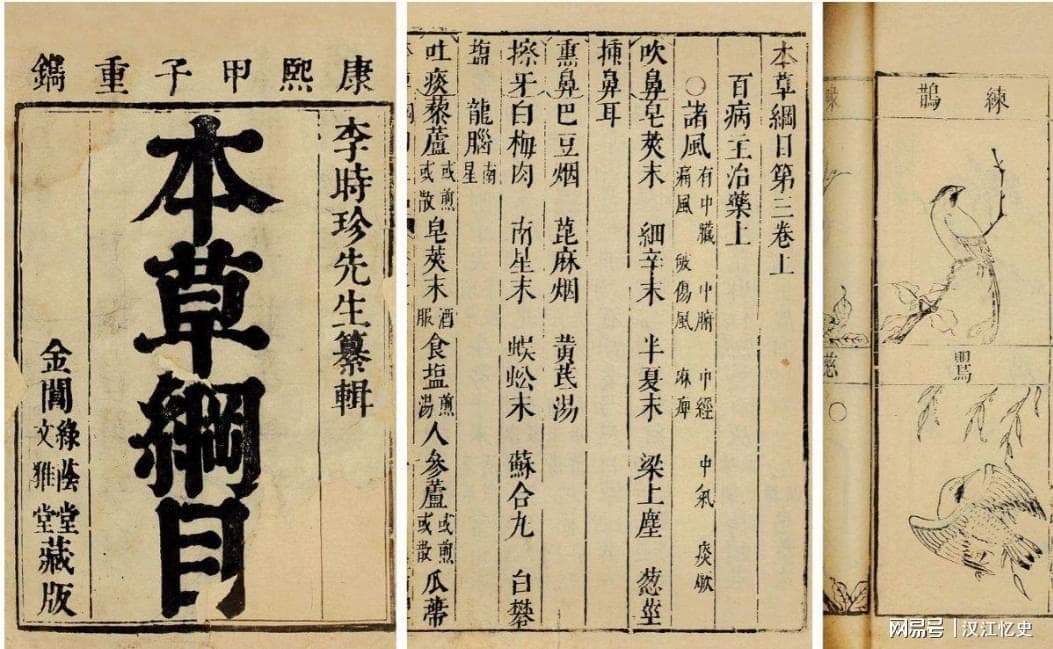 康熙甲子重鐫
李時珍先生纂輯
本草綱目
金閶綠蔭堂文雅堂藏版
本草綱目第三卷上
百病主治藥上
○諸風有中臟 中腑 中經 中氣 痰厥
痛風 破傷風 麻痺
吹鼻皂莢末 細辛末 半夏末 梁上塵 葱莖
插鼻耳
熏鼻巴豆烟 萞麻烟 黃芪湯
擦牙白梅肉 南星末 蜈蚣末 蘇合丸 白礬
塩 龍腦南星
吐痰藜蘆或煎或散 皂莢末酒服 食塩煎湯 人參蘆或煎或散 瓜蒂
練鵲
鸎
网易号 | 汉江忆史